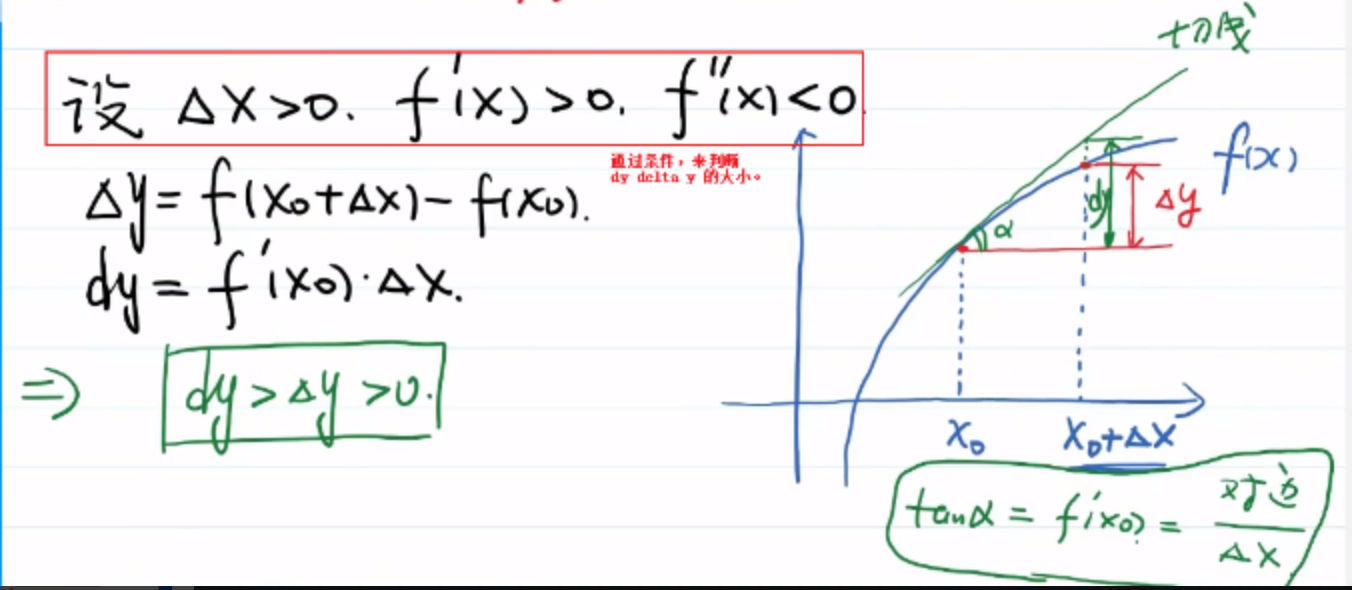 设 Δx>0. f'(x)>0. f''(x)<0.
通过条件，来判断
dy delta y 的大小。
Δy = f(x₀+Δx) - f(x₀).
dy = f'(x₀)·Δx.
⇒ dy > Δy > 0.
切线
f(x)
α
dy
Δy
x₀
x₀+Δx
tanα = f'(x₀) = 对边/Δx